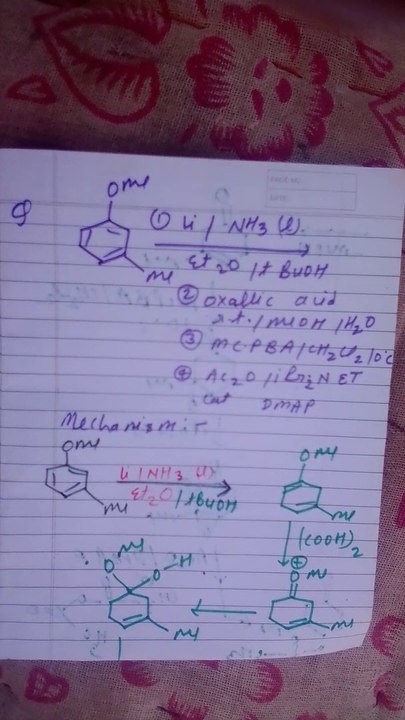 Q
OMe
① Li / NH3 (l)
Et2O / t BuOH
Me
② oxallic acid
r.t. / MeOH / H2O
③ MCPBA / CH2Cl2 / 0°C
④ Ac2O / iPr2N ET
Cat DMAP
Mechanism :-
OMe
Li / NH3 (l)
Et2O / tBuOH
Me
OMe
Me
(COOH)2
OMe
O
O-H
⊕
OMe
Me
Me